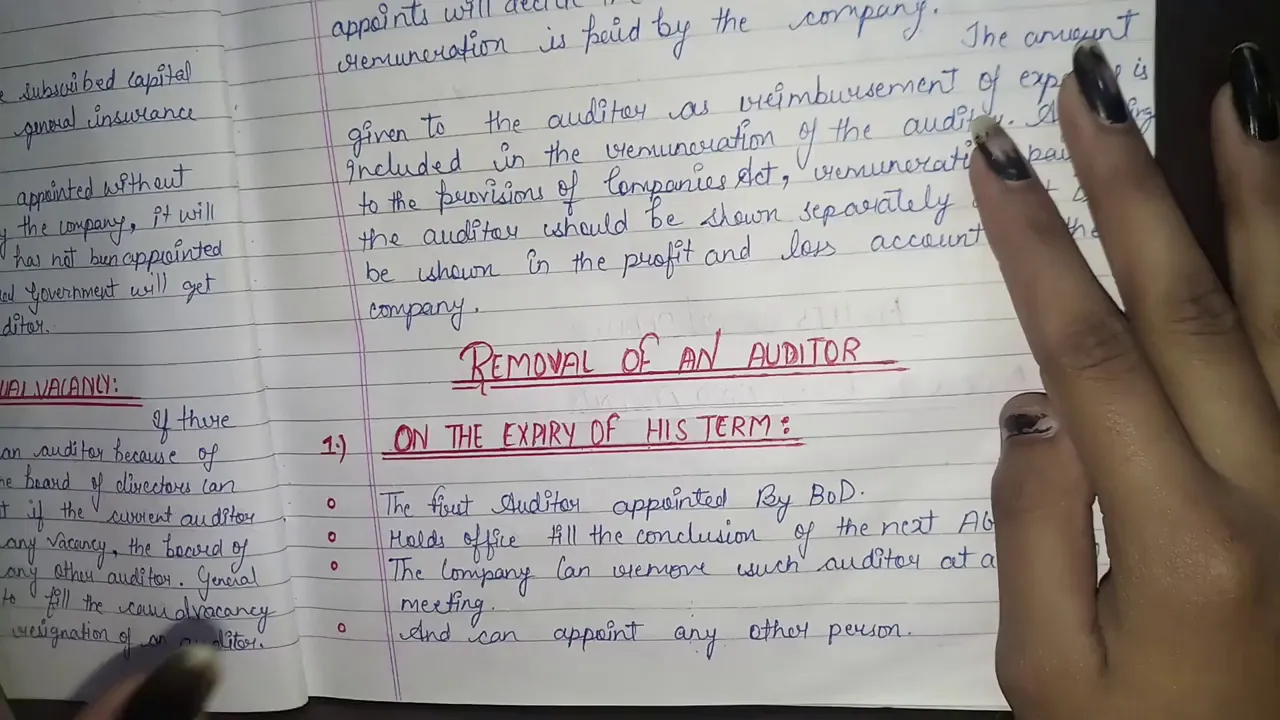 e subscribed capital
general insurance
appointed without
y the company, it will
has not been appointed
Government will get
ditor.
UAL VACANCY:
If there
an auditor because of
he board of directors can
t if the current auditor
any vacancy, the board of
any other auditor. General
to fill the casual vacancy
resignation of an auditor.
appoints will decide
remuneration is paid by the company. The amount
given to the auditor as reimbursement of is
included in the remuneration of the
to the provisions of Companies Act,
the auditor should be shown separately
be shown in the profit and loss account
company.
REMOVAL OF AN AUDITOR
1.) ON THE EXPIRY OF HIS TERM:
The first Auditor appointed By BoD.
Holds office till the conclusion of the next
The Company Can remove such auditor at a
meeting.
And can appoint any other person.